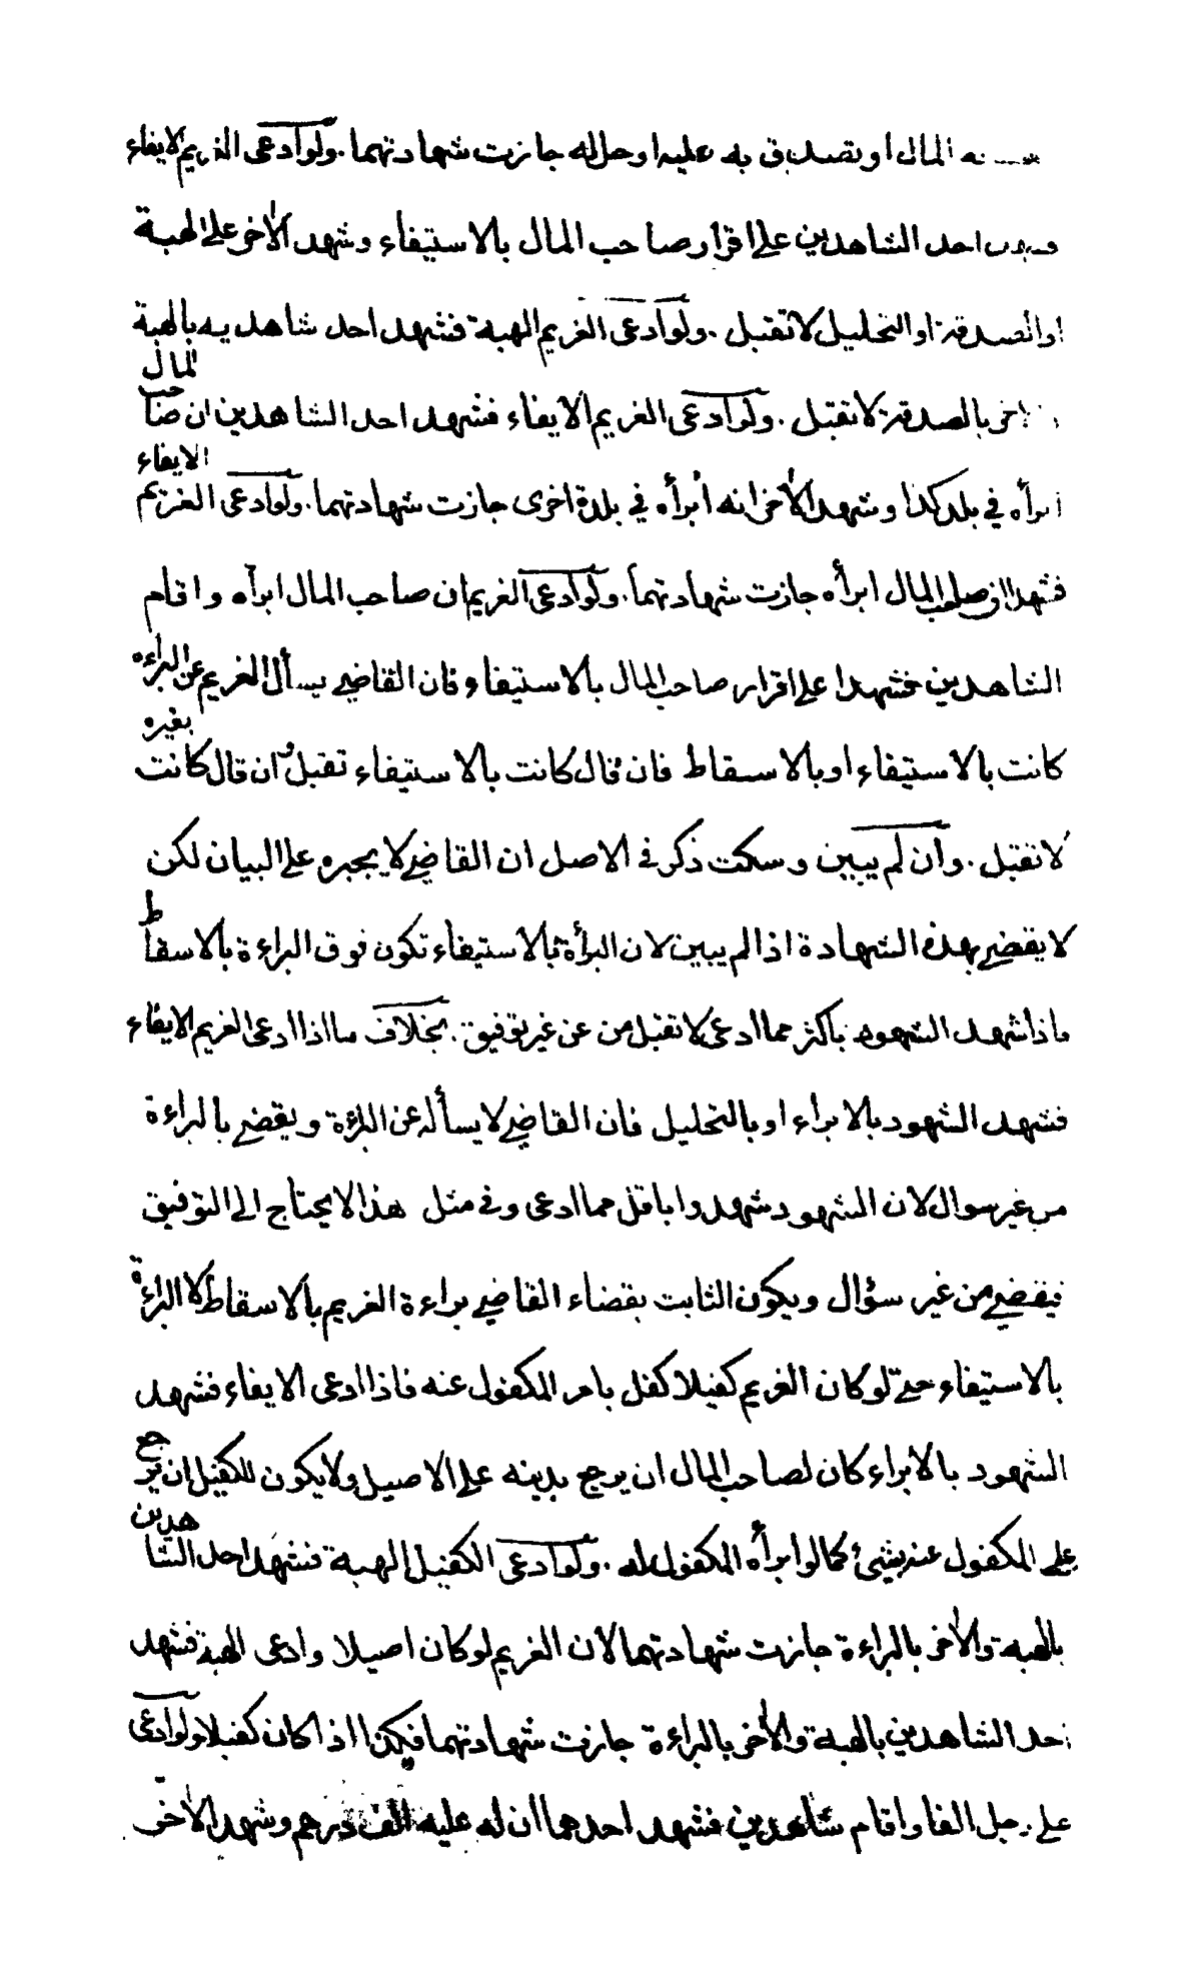 المال او تصدق به عليه او حلله جازت شهادتهما. ولو ادعى الغريم الايفاء
احد الشاهدين على اقرار صاحب المال بالاستيفاء وشهد الآخر على الهبة
او الصدقة او التحليل لا تقبل. ولو ادعى الغريم الهبة فشهد احد شاهديه بالهبة
والآخر بالصدقة لا تقبل. ولو ادعى الغريم الايفاء فشهد احد الشاهدين ان صاحب المال
ابرأه في بلد كذا وشهد الآخر انه ابرأه في بلدة اخرى جازت شهادتهما. ولو ادعى الغريم الايفاء
فشهدا ان صاحب المال ابرأه جازت شهادتهما. ولو ادعى الغريم ان صاحب المال ابرأه واقام
الشاهدين فشهدا على اقرار صاحب المال بالاستيفاء فان القاضي يسأل الغريم عن البراءة
كانت بالاستيفاء او بالاسقاط فان قال كانت بالاستيفاء تقبل وان قال كانت بغيره
لا تقبل. وان لم يبين وسكت ذكر في الاصل ان القاضي لا يجبره على البيان لكن
لا يقضي بهذه الشهادة اذا لم يبين لان البرأة بالاستيفاء تكون فوق البراءة بالاسقاط
فاذا شهد الشهود باكثر مما ادعى لا تقبل من غير توفيق. بخلاف ما اذا ادعى الغريم الايفاء
فشهد الشهود بالابراء او بالتحليل فان القاضي لا يسأله عن البراءة ويقضي بالبراءة
من غير سوال لان الشهود شهدوا باقل مما ادعى وفي مثل هذا لا يحتاج الى التوفيق
فيقضي من غير سؤال ويكون الثابت بقضاء القاضي براءة الغريم بالاسقاط لا البراءة
بالاستيفاء حتى لو كان الغريم كفيلا كفل بامر المكفول عنه فاذا ادعى الايفاء فشهد
الشهود بالابراء كان لصاحب المال ان يرجع بدينه على الاصيل ولا يكون للكفيل ان يرجع
على المكفول عنه بشيئ كما لو ابرأه المكفول له. ولو ادعى الكفيل الهبة فشهد احد الشاهدين
بالهبة والآخر بالبراءة جازت شهادتهما لان الغريم لو كان اصيلا وادعى الهبة فشهد
احد الشاهدين بالهبة والآخر بالبراءة جازت شهادتهما فكذا اذا كان كفيلا ولو ادعى
على رجل الفا واقام شاهدين فشهد احدهما ان له عليه الف درهم وشهد الآخر